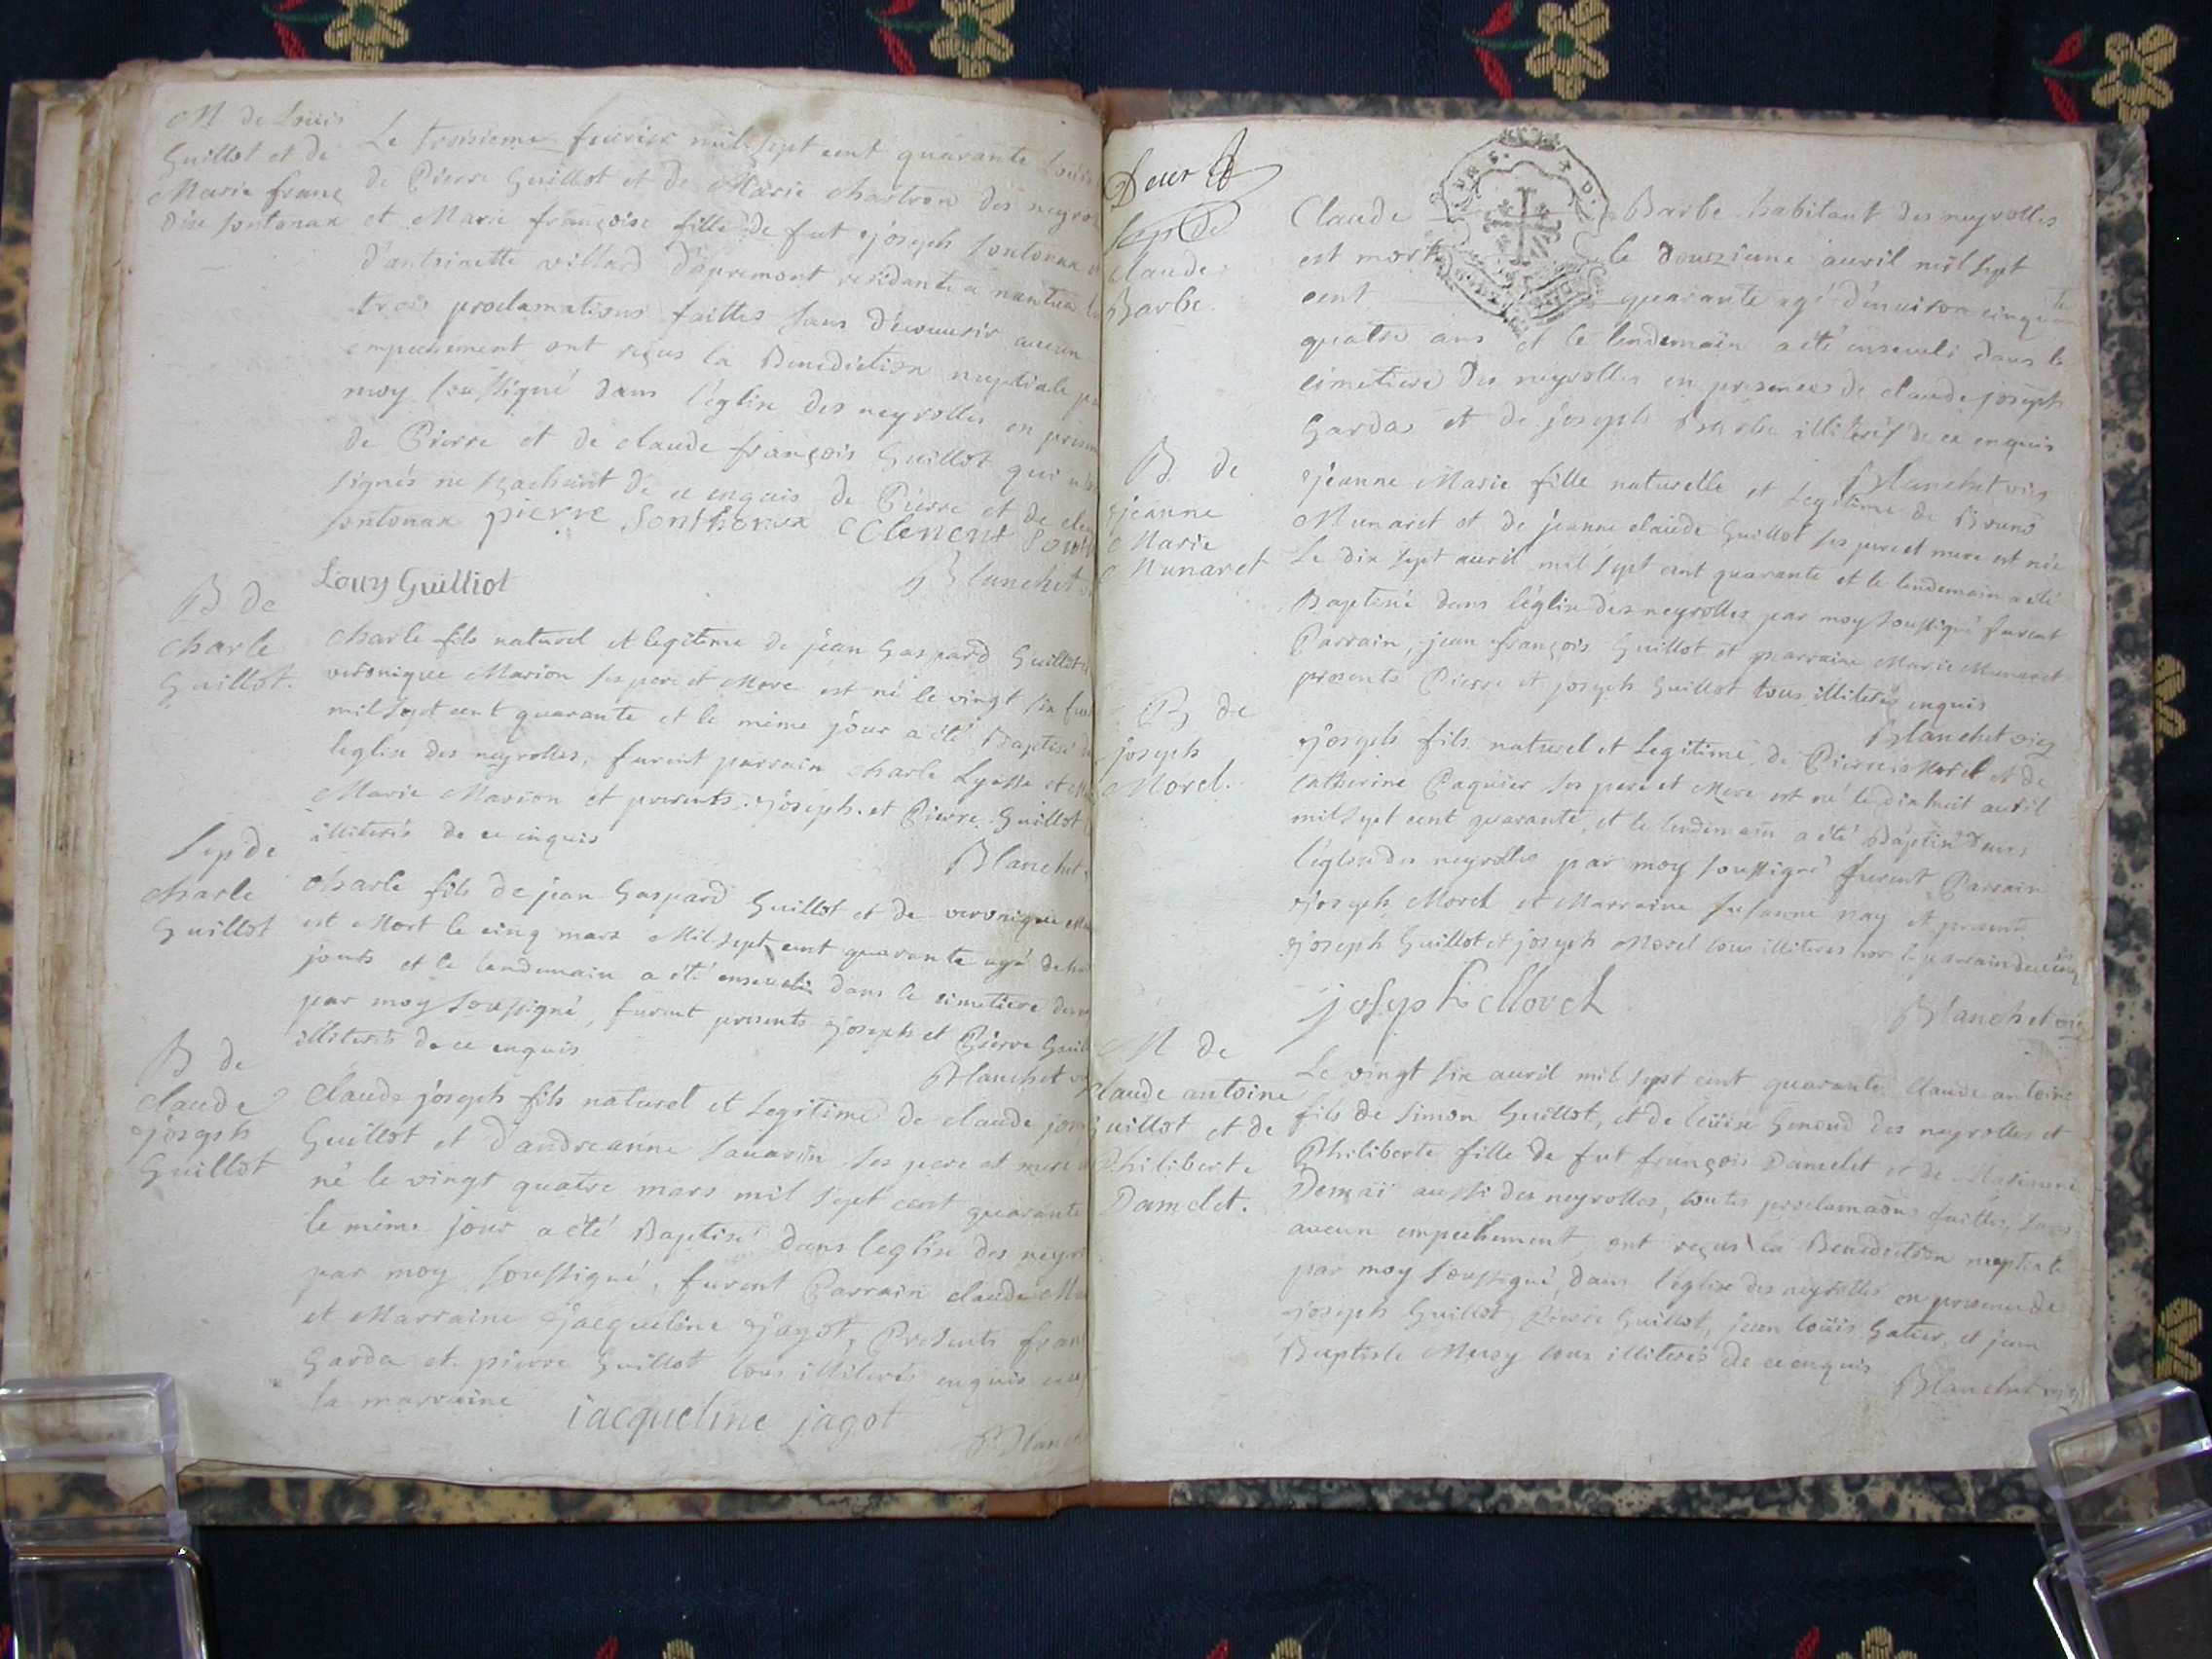 M de Loüis
Guillot et de
Marie franç
oise sontonax
Le troisieme feuvrier mil sept cent quarante Loüis
de Pierre Guillot et de Marie chartron des neyrol
et Marie françoise fille de fut joseph sontonax
d'antoinette villard d'apremont residante a nantua
trois proclamations faittes sans decouurir aucun
empechement ont reçus la Benediction nuptiale
moy soussigné dans l'église des neyrolles en presen
de Pierre et de claude françois Guillot qui n'ont
signés ne sçachant de ce enquis de Pierre et de
sontonax pierre Sonthonax Clement
Louy Guilliot
Blanchet
B de
charle
Guillot.
charle fils naturel et legitime de jean Gaspard Guillot
veronique Marion ses pere et Mere est né le vingt six
mil sept cent quarante et le même jour a été Baptisé
l'eglise des neyrolles, furent parrain charle Lyasse et
Marie Marion et presents joseph et Pierre Guillot
illiterés de ce enquis
Blanchet
Sep de
charle
Guillot
charle fils de jean Gaspard Guillot et de veronique
est Mort le cinq mars Mil sept cent quarante agé de
jours et le lendemain a été enseveli dans le cimetiere des
par moy soussigné, furent presents joseph et Pierre Guil
illiterés de ce enquis
Blanchet
B de
claude
joseph
Guillot
Claude joseph fils naturel et Legitime de claude
Guillot et d'andreanne sauarin ses pere et mere
né le vingt quatre mars mil sept cent quarante
le même jour a été Baptisé dans l'eglise des neyr
par moy soussigné, furent Parrain claude
et Marraine jacqueline jagot, Presents fran
Garda et pierre Guillot tous illiterés enquis
la marraine
iacqueline jagot
Blanch
Deux
Sep de
claude
Barbe.
Claude Barbe habitant des neyrolles
est mort le douzieme auril mil sept
cent quarante agé d'enuiron cinquante
quatre ans et le lendemain a été enseueli dans le
cimetiere des neyrolles en presences de claude joseph
Gardas et de joseph Barbe illiterés de ce enquis
Blanchet vic
B de
jeanne
Marie
Munaret
jeanne Marie fille naturelle et Legitime de Bruno
Munaret et de jeanne claude Guillot ses pere et mere est née
Le dix sept auril mil sept cent quarante et le lendemain a été
Baptisé dans l'église des neyrolles par moy soussigné furent
Parrain, jean françois Guillot et marraine Marie Munaret
presents Pierre et joseph Guillot tous illiterés enquis
Blanchet vic
B de
joseph
Morel.
joseph fils naturel et Legitime de Pierre Morel et de
catherine Paquier ses pere et Mere est né le dix huit auril
mil sept cent quarante, et le lendemain a été Baptisé dans
l'église des neyrolles par moy soussigné furent Parrain
joseph Morel et Marraine susanne nay et presents
joseph Guillot et joseph Morel tous illiteres hor le parrain de ce enq
joseph Morel
Blanchet vic
M de
claude antoine
Guillot et de
Philiberte
Damelet.
Le vingt six auril mil sept cent quarante claude antoine
fils de simon Guillot, et de loüise Genoud des neyrolles et
Philiberte fille de fut françois Damelet et de
aussi des neyrolles, toutes proclamaons faittes, sans
aucun empechement ont reçus la Benediction nuptiale
par moy soussigné, dans l'église des neyrolles en presence de
joseph Guillot Pierre Guillot, jean loüis Gatier, et jean
Baptiste tous illiterés de ce enquis
Blanchet vic